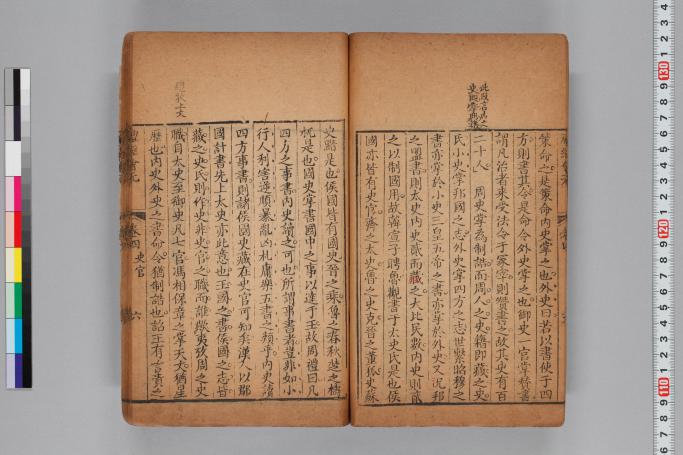 策命之是策命內史掌之也外史曰若以書使于四
方則書其令是命令外史掌之也御史一官掌贊書
謂凡治者來受法令于冢宰則贊書之故其史有百
二十人 周史掌為制誥而周人之史籍即藏之史
氏小史掌邦國之志外史掌四方之志世繫昭穆之
書亦掌於小史三皇五帝之書亦掌於外史又況邦
之盟書則太史內史貳而藏之大比民數內史則貳
之以制國用故韓宣子聘魯觀書于大史氏是也侯
國亦皆有史官齊之太史魯之史克晉之董狐史蘇
史黯是也侯國皆有國史晉之乘魯之春秋楚之檮
杌是也國史掌書國中之事以達于王故周禮曰凡
四方之事書內史讀之可也所謂事書者豈非如小
行人利害逆順暴亂凶札康樂五書之類乎內史讀
四方事書則諸侯國史藏在史官可知矣漢人以郡
國計書先上太史亦此意也王國之書侯國之志皆
藏之史氏則作史非史官之職而誰歟夷攷周之史
職自太史至御史凡七官馮相保章之掌天文猶星
曆也內史外史之書命令猶制誥也詔王有言責之
卷四 史官
六